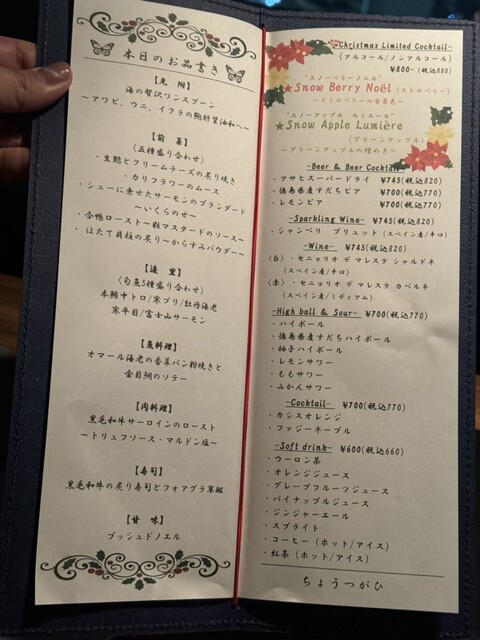 本日のお品書き
【先附】
海の贅沢ワンスプーン
～アワビ、ウニ、イクラの鮑肝醤油和へ～
【前菜】
〈五種盛り合わせ〉
・生麩とクリームチーズの炙り焼き
・カリフラワーのムース
・シューに乗せたサーモンのブランダード
～いくらのせ～
・合鴨ロースト～粒マスタードのソース～
・ほたて貝柱の炙り～からすみパウダー～
【造里】
〈旬魚5種盛り合わせ〉
本鮪中トロ/寒ブリ/牡丹海老
寒平目/富士山サーモン
【魚料理】
オマール海老の香草パン粉焼きと
金目鯛のソテー
【肉料理】
黒毛和牛サーロインのロースト
～トリュフソース・マルドン塩～
【寿司】
黒毛和牛の炙り寿司とフォアグラ軍艦
【甘味】
ブッシュドノエル
-Christmas Limited Cocktail-
(アルコール/ノンアルコール)
¥800-(税込880)
"スノーベリーノエル"
★Snow Berry Noël (ストロベリー)
～ストロベリーの雪景色～
"スノーアップル ルミエール"
★Snow Apple Lumière
(グリーンアップル)
～グリーンアップルの煌めき～
-Beer & Beer Cocktail-
・アサヒスーパードライ ¥745(税込820)
・徳島県産すだちビア ¥700(税込770)
・レモンビア ¥700(税込770)
-Sparkling Wine- ¥745(税込820)
・シャンベリ ブリュット (スペイン産/辛口)
-Wine- ¥745(税込820)
(白)・セニョリオ デ マレステ シャルドネ
(スペイン産/辛口)
(赤)・セニョリオ デ マレステ カベルネ
(スペイン産/ミディアム)
-High ball & Sour- ¥700(税込770)
・ハイボール
・徳島県産すだちハイボール
・柚子ハイボール
・レモンサワー
・ももサワー
・みかんサワー
-Cocktail- ¥700(税込770)
・カシスオレンジ
・ファジーネーブル
-Soft drink- ¥600(税込660)
・ウーロン茶
・オレンジジュース
・グレープフルーツジュース
・パイナップルジュース
・ジンジャーエール
・スプライト
・コーヒー (ホット/アイス)
・紅茶 (ホット/アイス)
ちょうつがひ